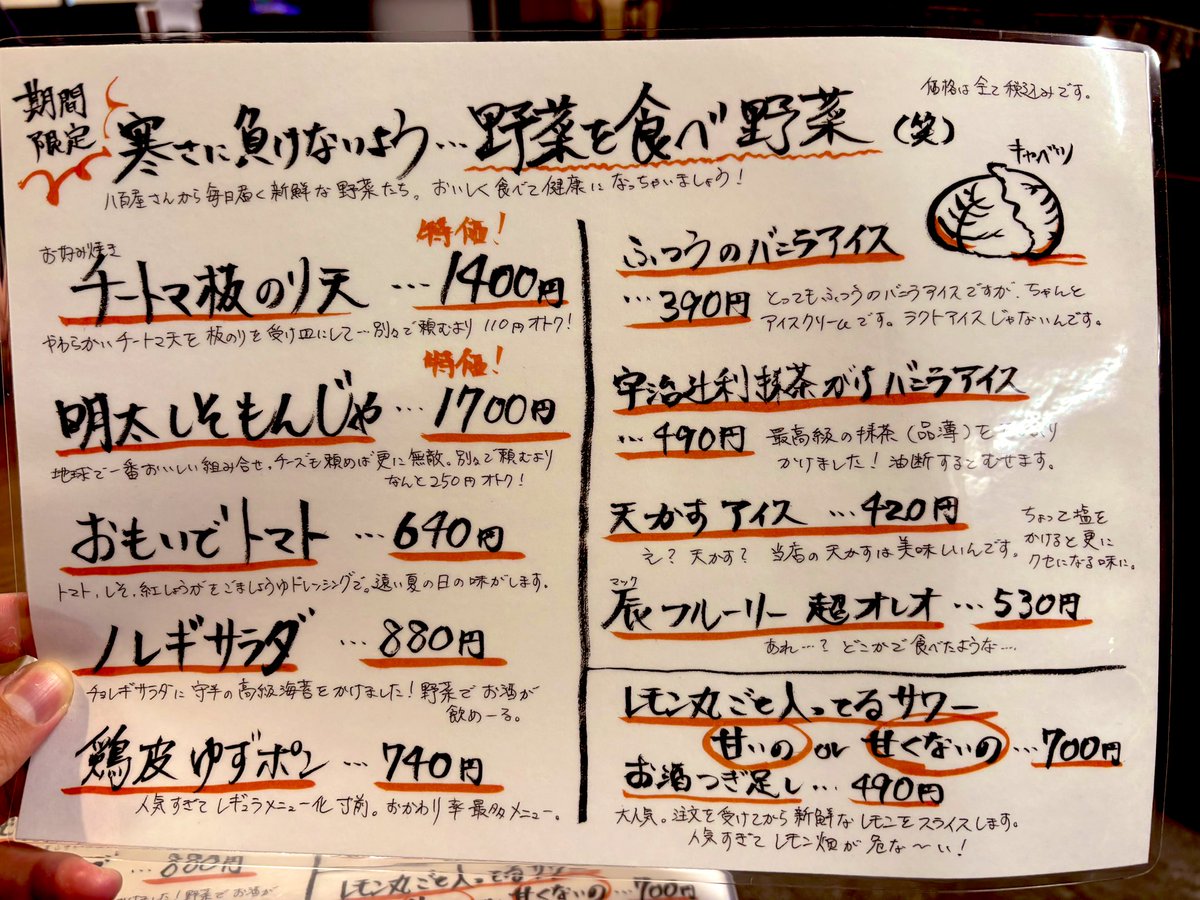 期間
限定
寒さに負けないよう…野菜を食べ野菜(笑)
価格は全て税込みです。
八百屋さんから毎日届く新鮮な野菜たち。おいしく食べて健康になっちゃいましょう!
キャベツ
お好み焼き
特価!
チートマ板のり天 …1400円
やわらかいチートマ天を板のりを受け皿にして…別々で頼むより110円オトク!
特価!
明太しそもんじゃ…1700円
地球で一番おいしい組み合せ。チーズも頼めば更に無敵。別々で頼むより
なんと250円オトク!
おもいでトマト…640円
トマト、しそ、紅しょうがをごましょうゆドレッシングで。遠い夏の日の味がします。
ノレギサラダ …880円
チョレギサラダに守半の高級海苔をかけました!野菜でお酒が
飲めーる。
鶏皮ゆずポン…740円
人気すぎてレギュラメニュー化寸前。おかわり率最多メニュー。
ふつうのバニラアイス
…390円
とってもふつうのバニラアイスですが、ちゃんと
アイスクリームです。ラクトアイスじゃないんです。
宇治辻利抹茶がけバニラアイス
…490円
最高級の抹茶(品薄)を
かけました!油断するとむせます。
天かすアイス …420円
え?天かす? 当店の天かすは美味しいんです。
ちょって塩を
かけると更に
クセになる味に。
マック
辰フルーリー 超オレオ …530円
あれ…?どこかで食べたような…
レモン丸ごと入ってるサワー
甘いの or 甘くないの…700円
お酒つぎ足し…490円
大人気。注文を受けてから新鮮なレモンをスライスします。
人気すぎてレモン畑が危な〜い!
880円
野菜でお酒が
レモン丸ごと入ってるサワー
甘くないの…700円